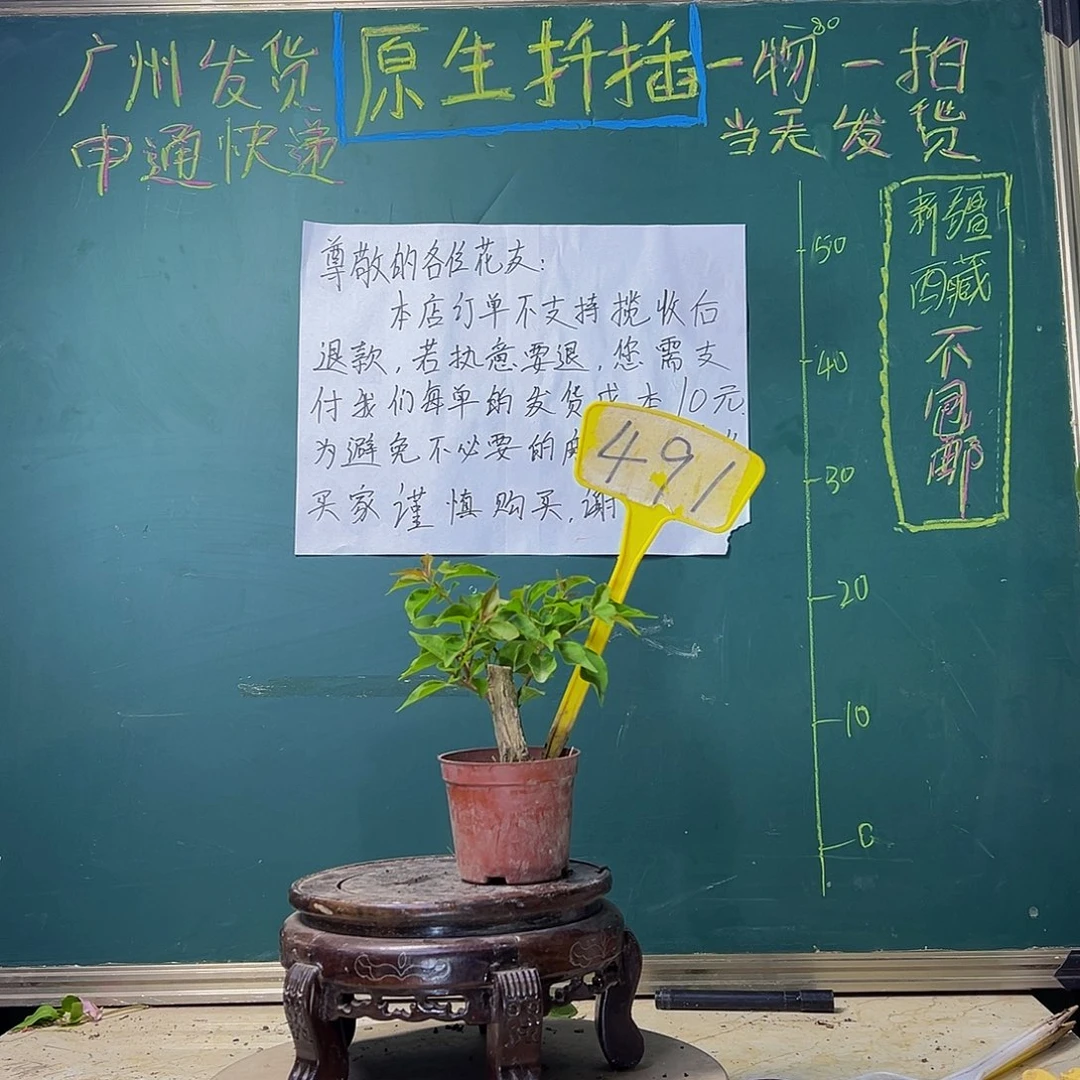 广州发货
申通快递
原生扦插
一物一拍
80
当天发货
新疆
西藏
不
包
邮
50
40
30
20
10
0
尊敬的各位花友:
本店订单不支持揽收后
退款,若执意要退,您需支
付我们每单的发货成本10元.
为避免不必要的
买家谨慎购买,谢
491